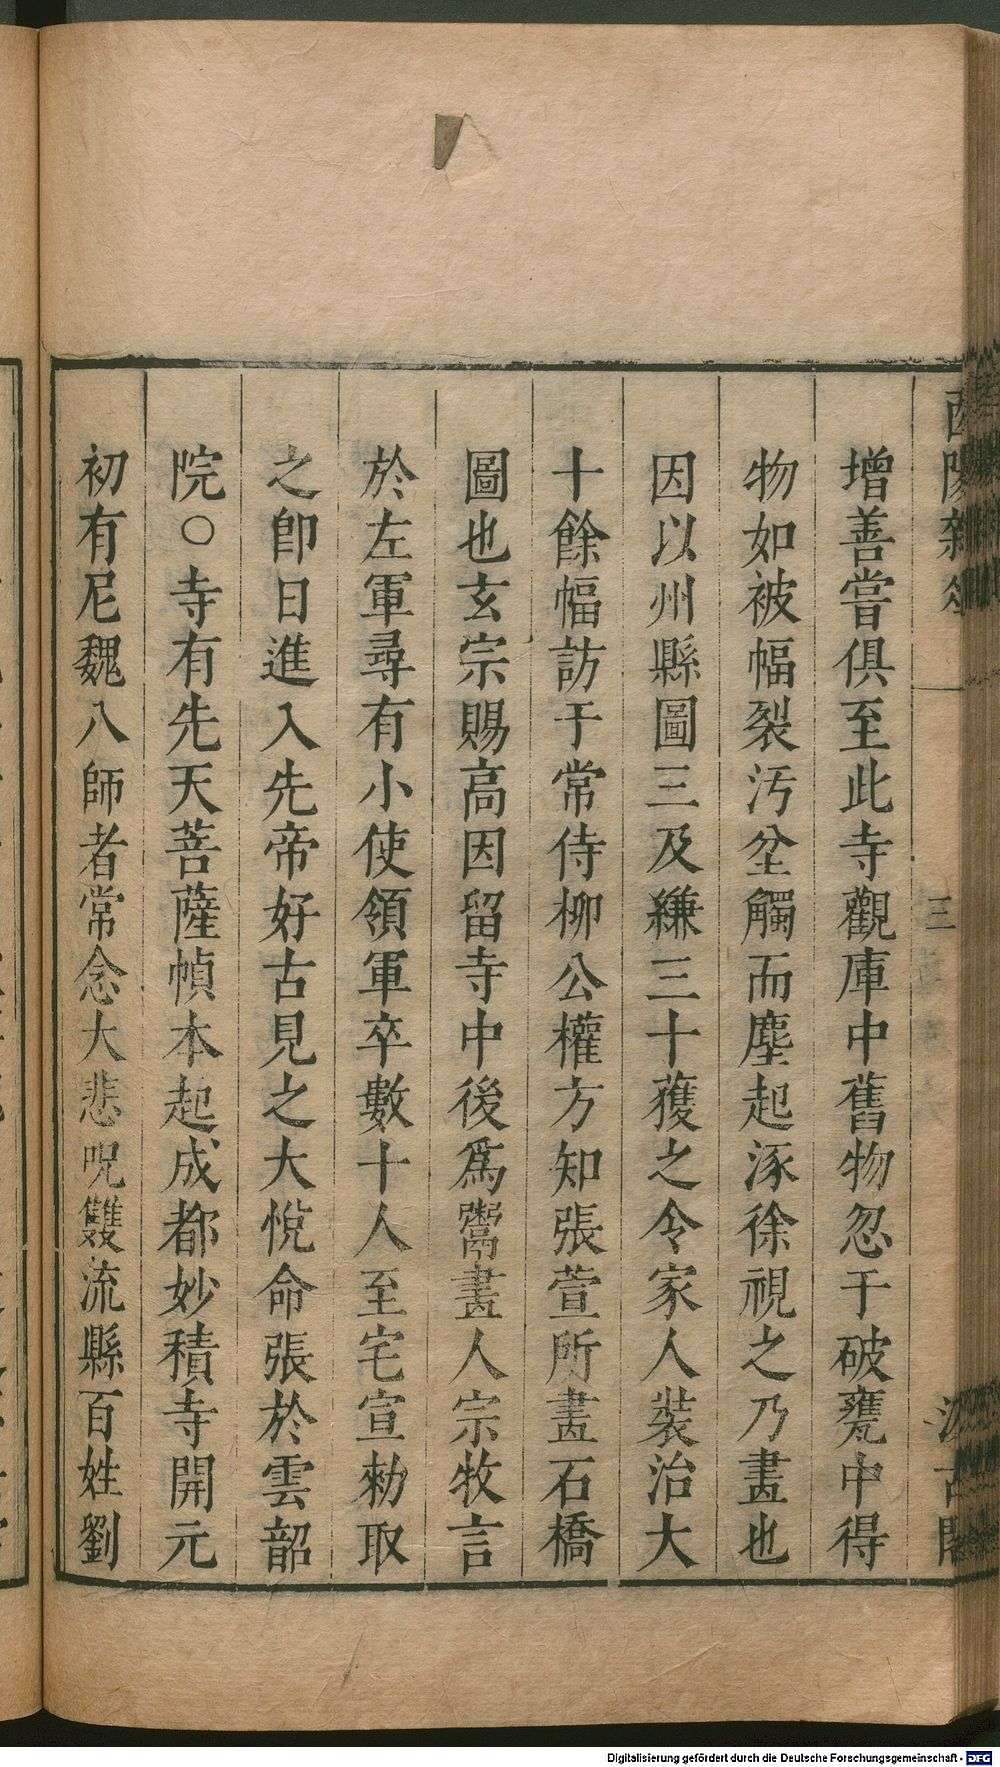 增善嘗俱至此寺觀庫中舊物忽于破甕中得
物如被幅裂汚坌觸而塵起涿徐視之乃畫也
因以州縣圖三及縑三十獲之令家人裝治大
十餘幅訪于常侍柳公權方知張萱所畫石橋
圖也玄宗賜高因留寺中後爲鬻畫人宗牧言
於左軍尋有小使領軍卒數十人至宅宣勑取
之卽日進入先帝好古見之大悅命張於雲韶
院○寺有先天菩薩幀本起成都妙積寺開元
初有尼魏八師者常念大悲呪雙流縣百姓劉
三
Digitalisierung gefördert durch die Deutsche Forschungsgemeinschaft - DFG